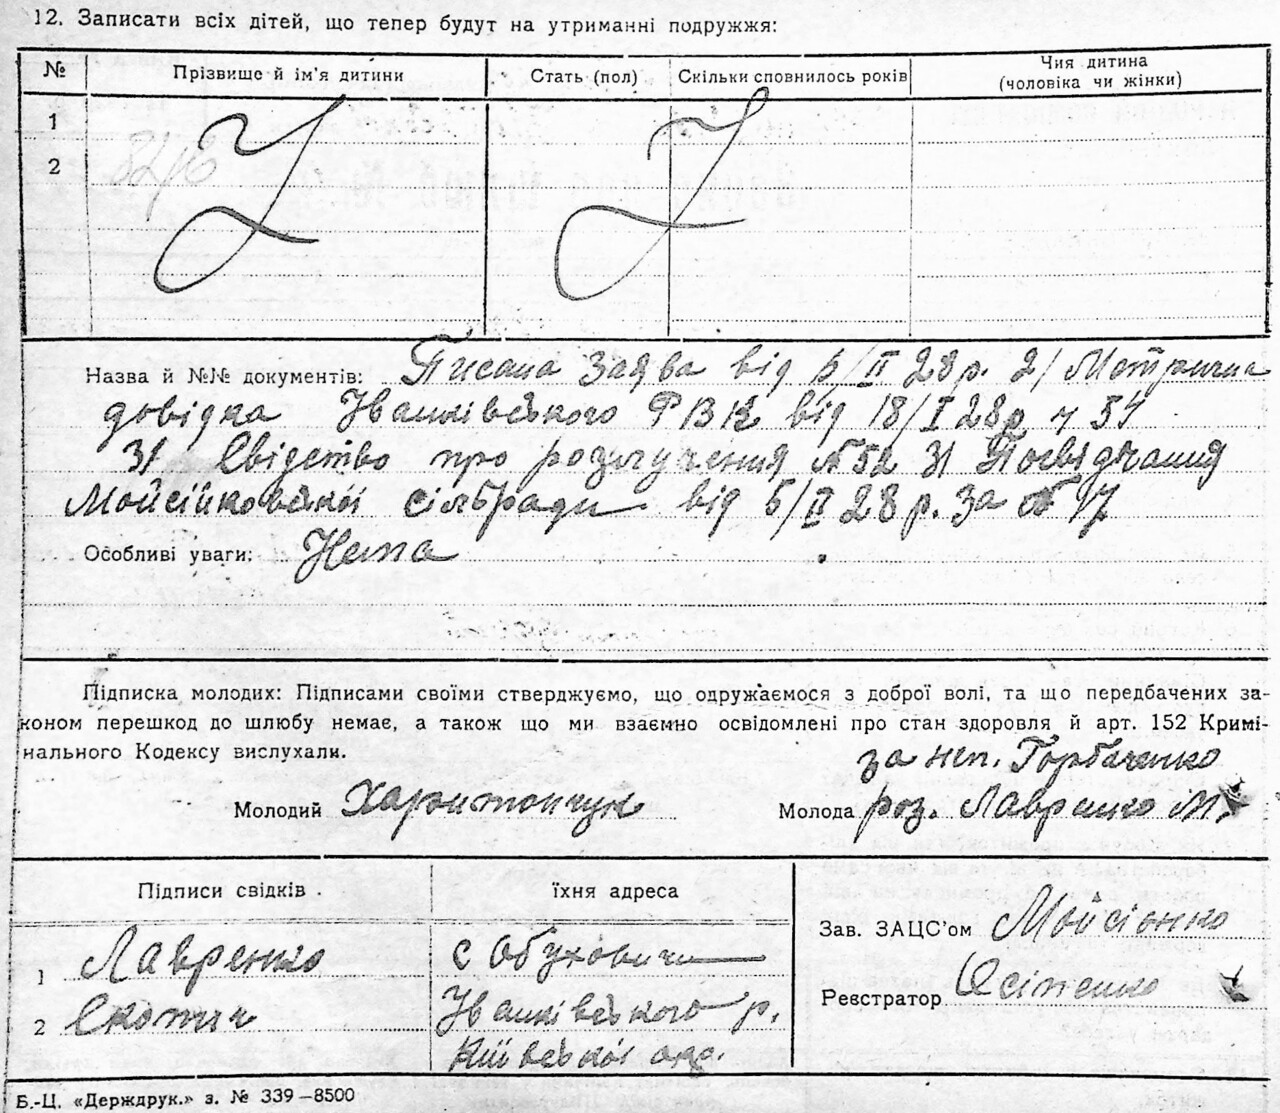 12. Записати всіх дітей, що тепер будут на утриманні подружжя:
№ Прізвище й ім'я дитини Стать (пол) Скільки сповнилось років Чия дитина (чоловіка чи жінки)
1
2
Назва й №№ документів: Писана Заява від 5/II 28 р. 2/ Метрична
довідка Іванківського РВК від 18/I 28р ч 54
3/ Свідетво про розлучення №52 3/ Посвідчання
Мойсійковської сільради від 5/II 28 р. За № 17
Особливі уваги: Нема
Підписка молодих: Підписами своїми стверджуємо, що одружаємося з доброї волі, та що передбачених за-
коном перешкод до шлюбу немає, а також що ми взаємно освідомлені про стан здоровля й арт. 152 Кримі-
нального Кодексу вислухали.
за неп. Горбаченко
Молодий Харитончук Молода роз. Лавренко М.
Підписи свідків їхня адреса
Зав. ЗАЦС'ом Мойсієнко
1 Лавренко с Обуховичи
Реєстратор Осіпенко
2 Скопич Іванківського р.
Київської окр.
Б.-Ц. «Держдрук.» з. № 339—8500